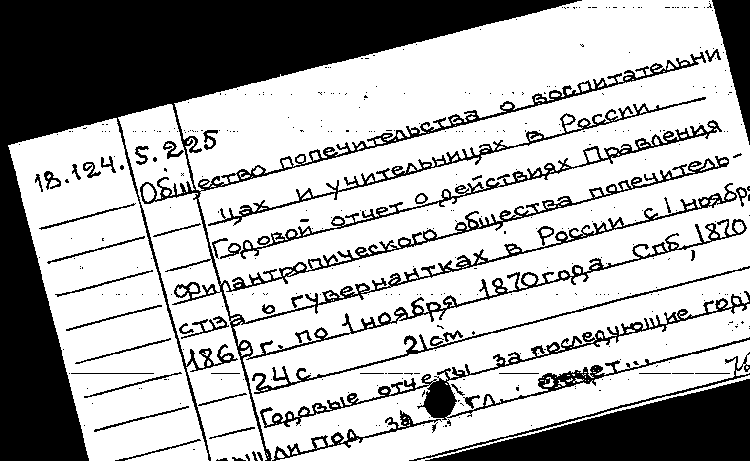 18.124.5.225
Общество попечительства о воспитательни
цах и учительницах в России.
Годовой отчет о действиях Правления
Филантропического общества попечитель-
ства о гувернантках в России с 1 ноября
1869 г. по 1 ноября 1870 года. Спб, 1870
24 с. 21 cm.
Годовые отчеты за последующие годы
вышли под загл.: